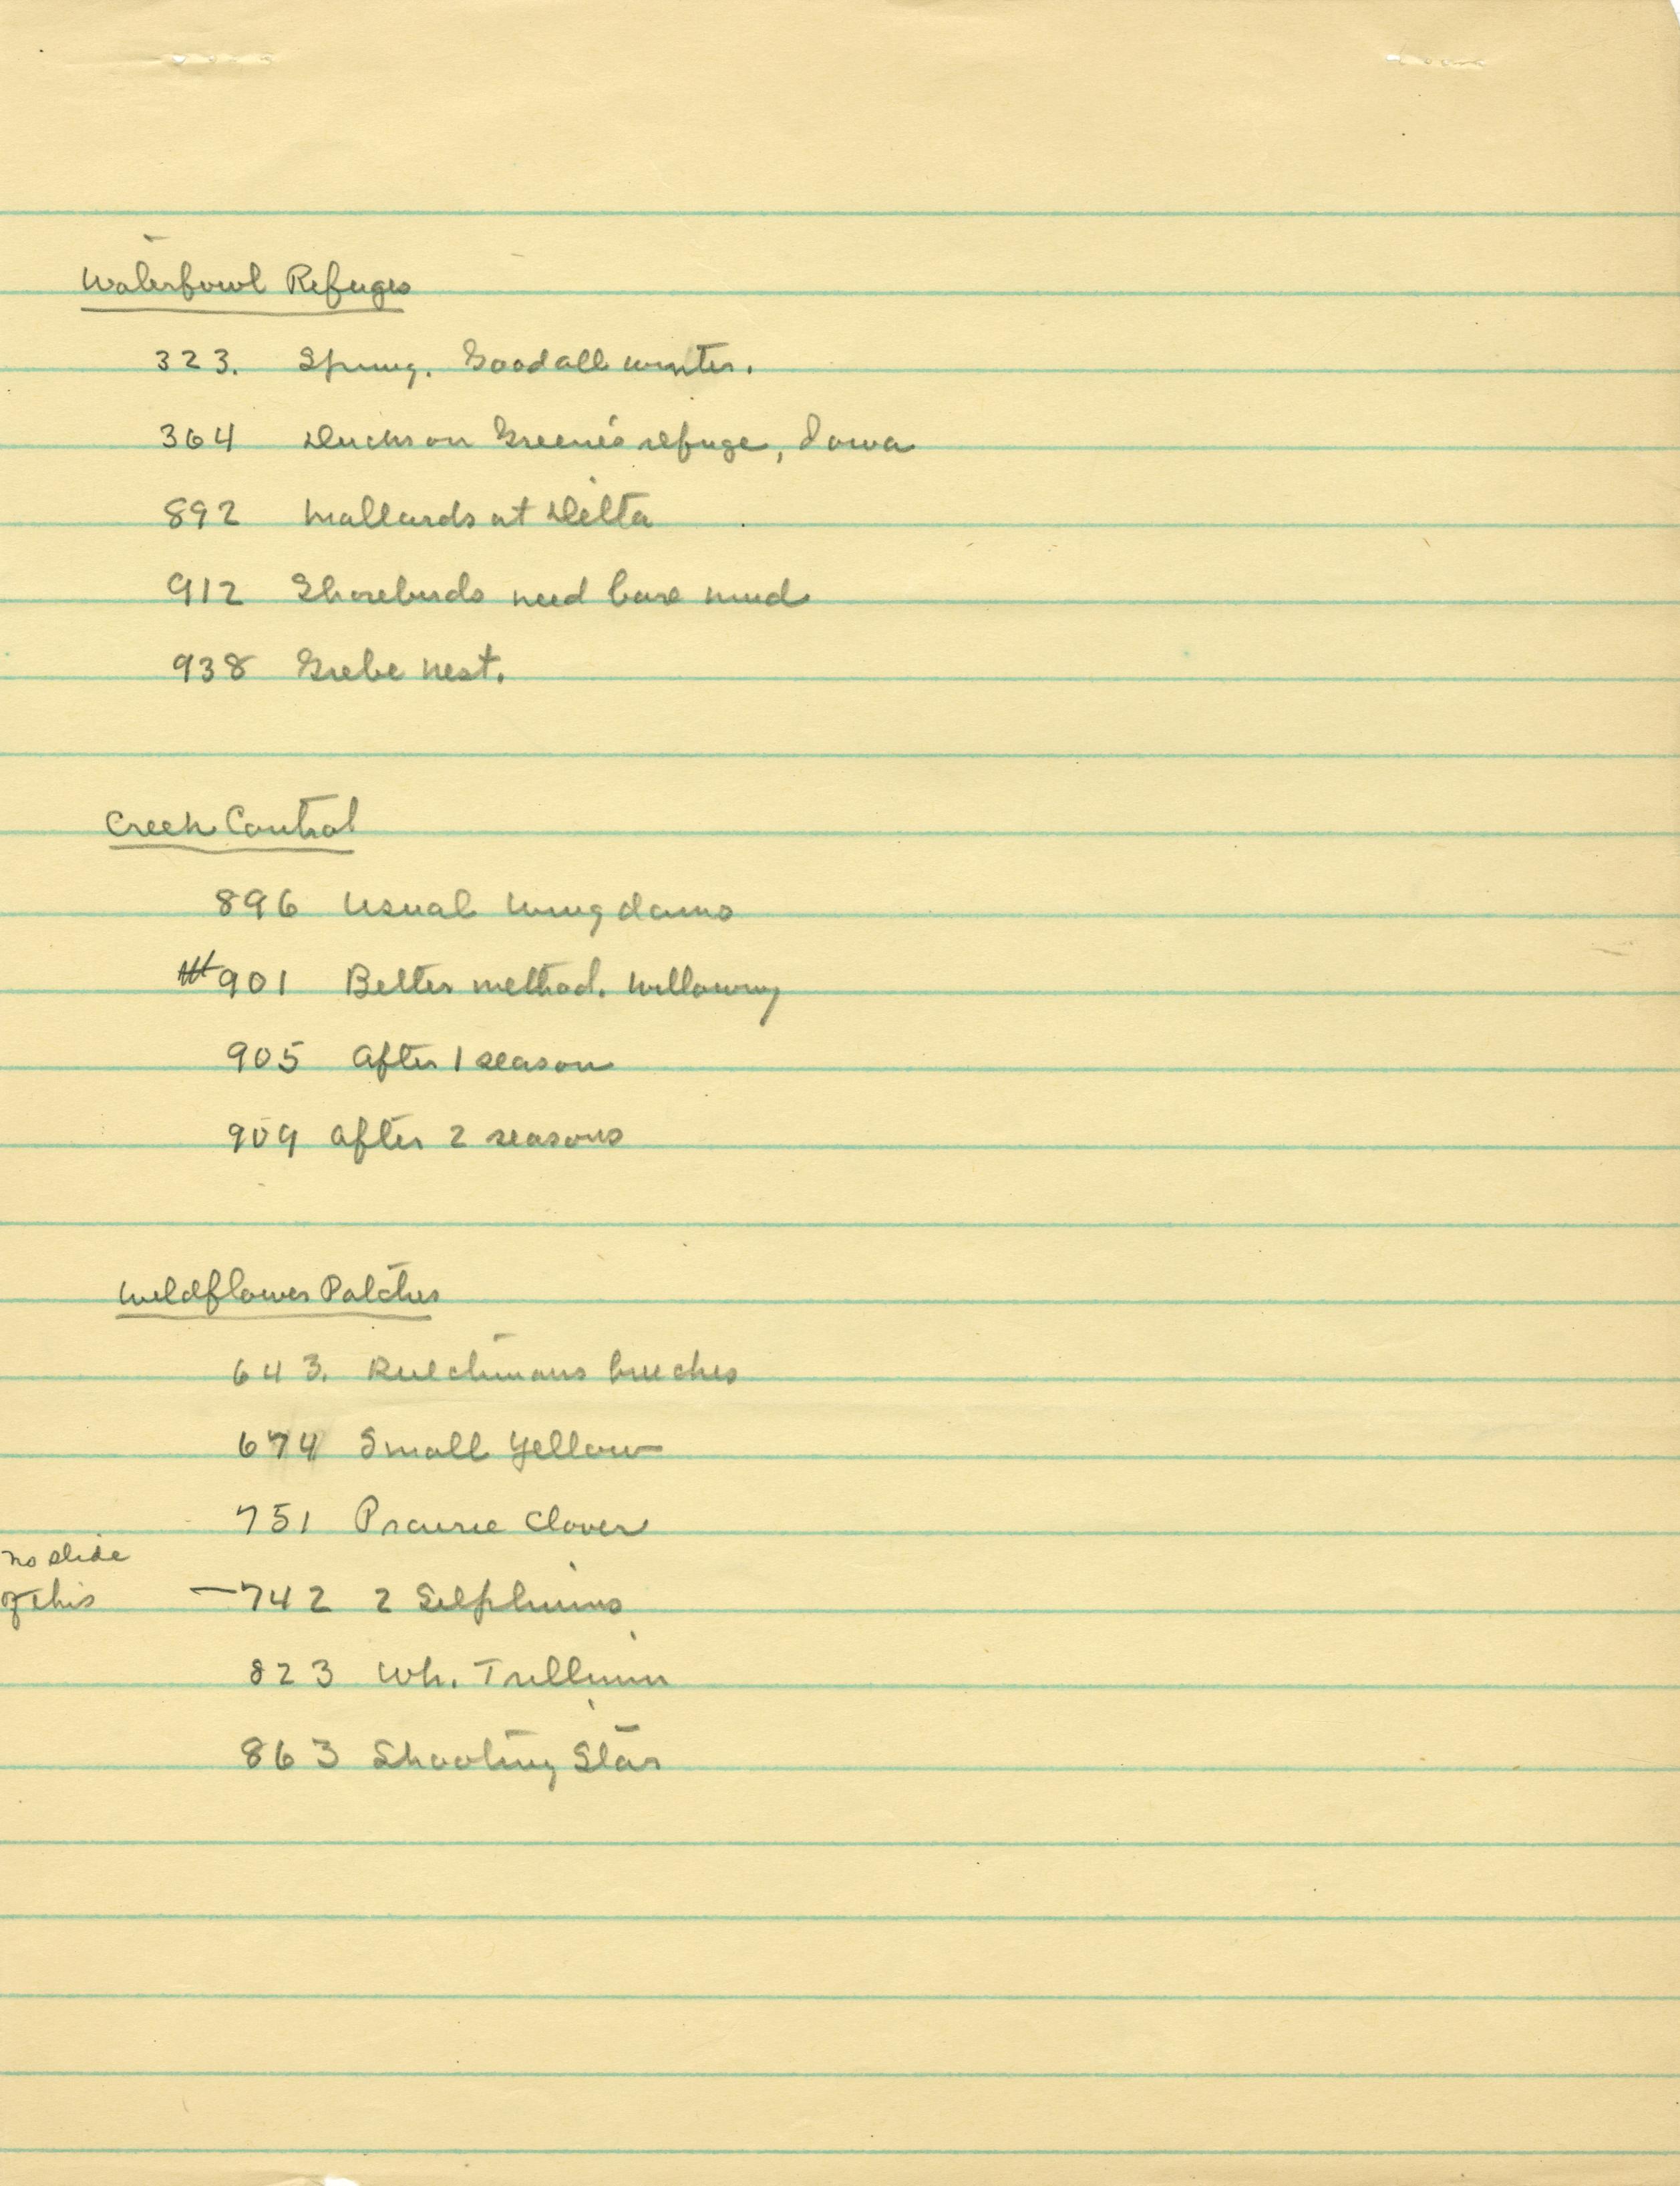 Waterfowl Refuges
323. Spring. Good all winter.
364 Ducks on Greene's refuge, Iowa
892 Mallards at Delta
912 Shorebirds need bare mud
938 Grebe nest.
Creek Control
896 Usual wing dams
901 Better method. Willowing
905 After 1 season
909 After 2 seasons
Wildflower Patches
643. Dutchmans breeches
674 Small Yellow
751 Prairie Clover
no slide
of this —742 2 Silphiums
823 Wh. Trillium
863 Shooting Star